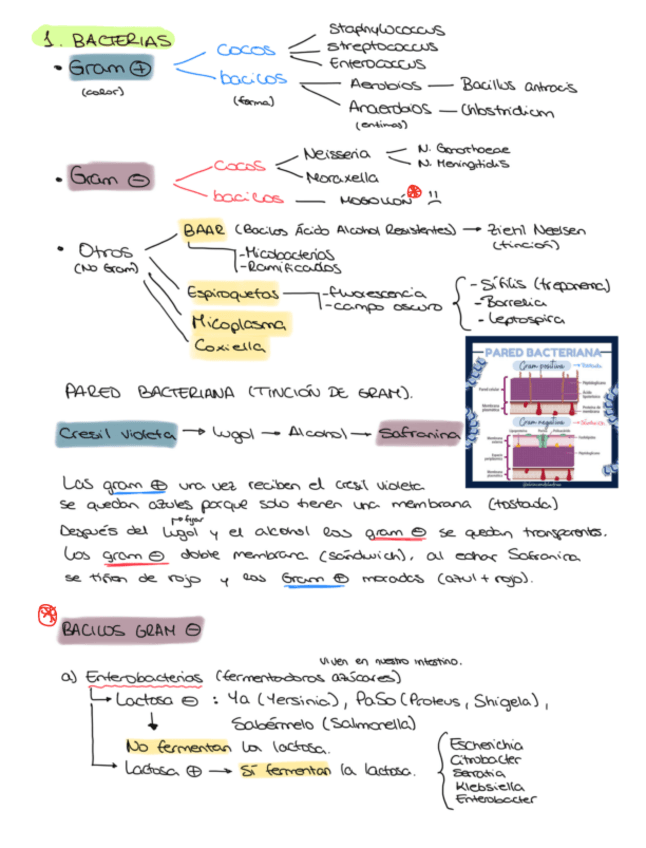 1. BACTERIAS
• Gram ⊕
(color)
cocos
Staphylococcus
Streptococcus
Enterococcus
bacilos
(forma)
Aerobios — Bacillus antracis
Anaerobios — Clostridium
(encimas)
• Gram ⊖
cocos
Neisseria
N. Gonorhoeae
N. Meningitidis
Moraxella
bacilos — MOGOLLÓN * !!
• Otros
(No Gram)
BAAR (Bacilos Ácido Alcohol Resistentes) → Ziehl Neelsen
(tinción)
- Micobacterias
- Ramificados
Espiroquetas
- fluorescencia
- campo oscuro
- Sífilis (treponema)
- Borrelia
- Leptospira
Micoplasma
Coxiella
PARED BACTERIANA
Gram positiva
Pared celular
Peptidoglicano
Membrana plasmática
Gram negativa
Membrana plasmática
Peptidoglicano
PARED BACTERIANA (TINCIÓN DE GRAM).
Cresil violeta → Lugol → Alcohol → Safranina
Las gram ⊕ una vez reciben el cresil violeta
se quedan azules porque solo tienen una membrana (tostada)
pa fijar
Después del Lugol y el alcohol las gram ⊖ se quedan transparentes.
Las gram ⊖ doble membrana (sándwich), al echar Safranina
se tiñen de rojo y las Gram ⊕ moradas (azul + rojo).
* BACILOS GRAM ⊖
viven en nuestro intestino.
a) Enterobacterias (fermentadoras azúcares)
Lactosa ⊖ : Ya (Yersinia), PaSo (Proteus, Shigela),
Sabérmelo (Salmonella)
No fermentan la lactosa.
Lactosa ⊕ → Sí fermentan la lactosa.
Escherichia
Citrobacter
Serratia
Klebsiella
Enterobacter